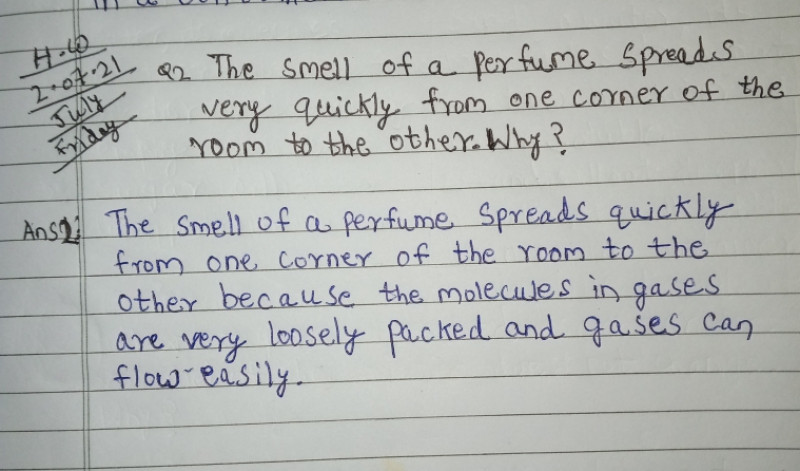 H.W
2.07.21
July
Friday
Q2 The smell of a perfume spreads
very quickly from one corner of the
room to the other. Why?
Ans2: The smell of a perfume spreads quickly
from one corner of the room to the
other because the molecules in gases
are very loosely packed and gases can
flow easily.